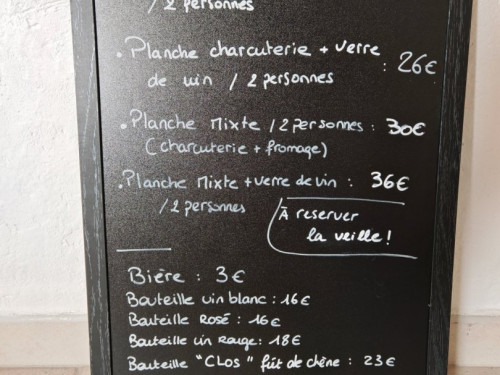 / 2 personnes
• Planche charcuterie + verre
de vin / 2 personnes : 26€
• Planche Mixte / 2 personnes : 30€
(charcuterie + fromage)
• Planche Mixte + verre de vin : 36€
/ 2 personnes
À reserver
la veille !
Bière : 3€
Bouteille vin blanc : 16€
Bouteille Rosé : 16€
Bouteille vin Rouge : 18€
Bouteille "CLOS" fût de chêne : 23€